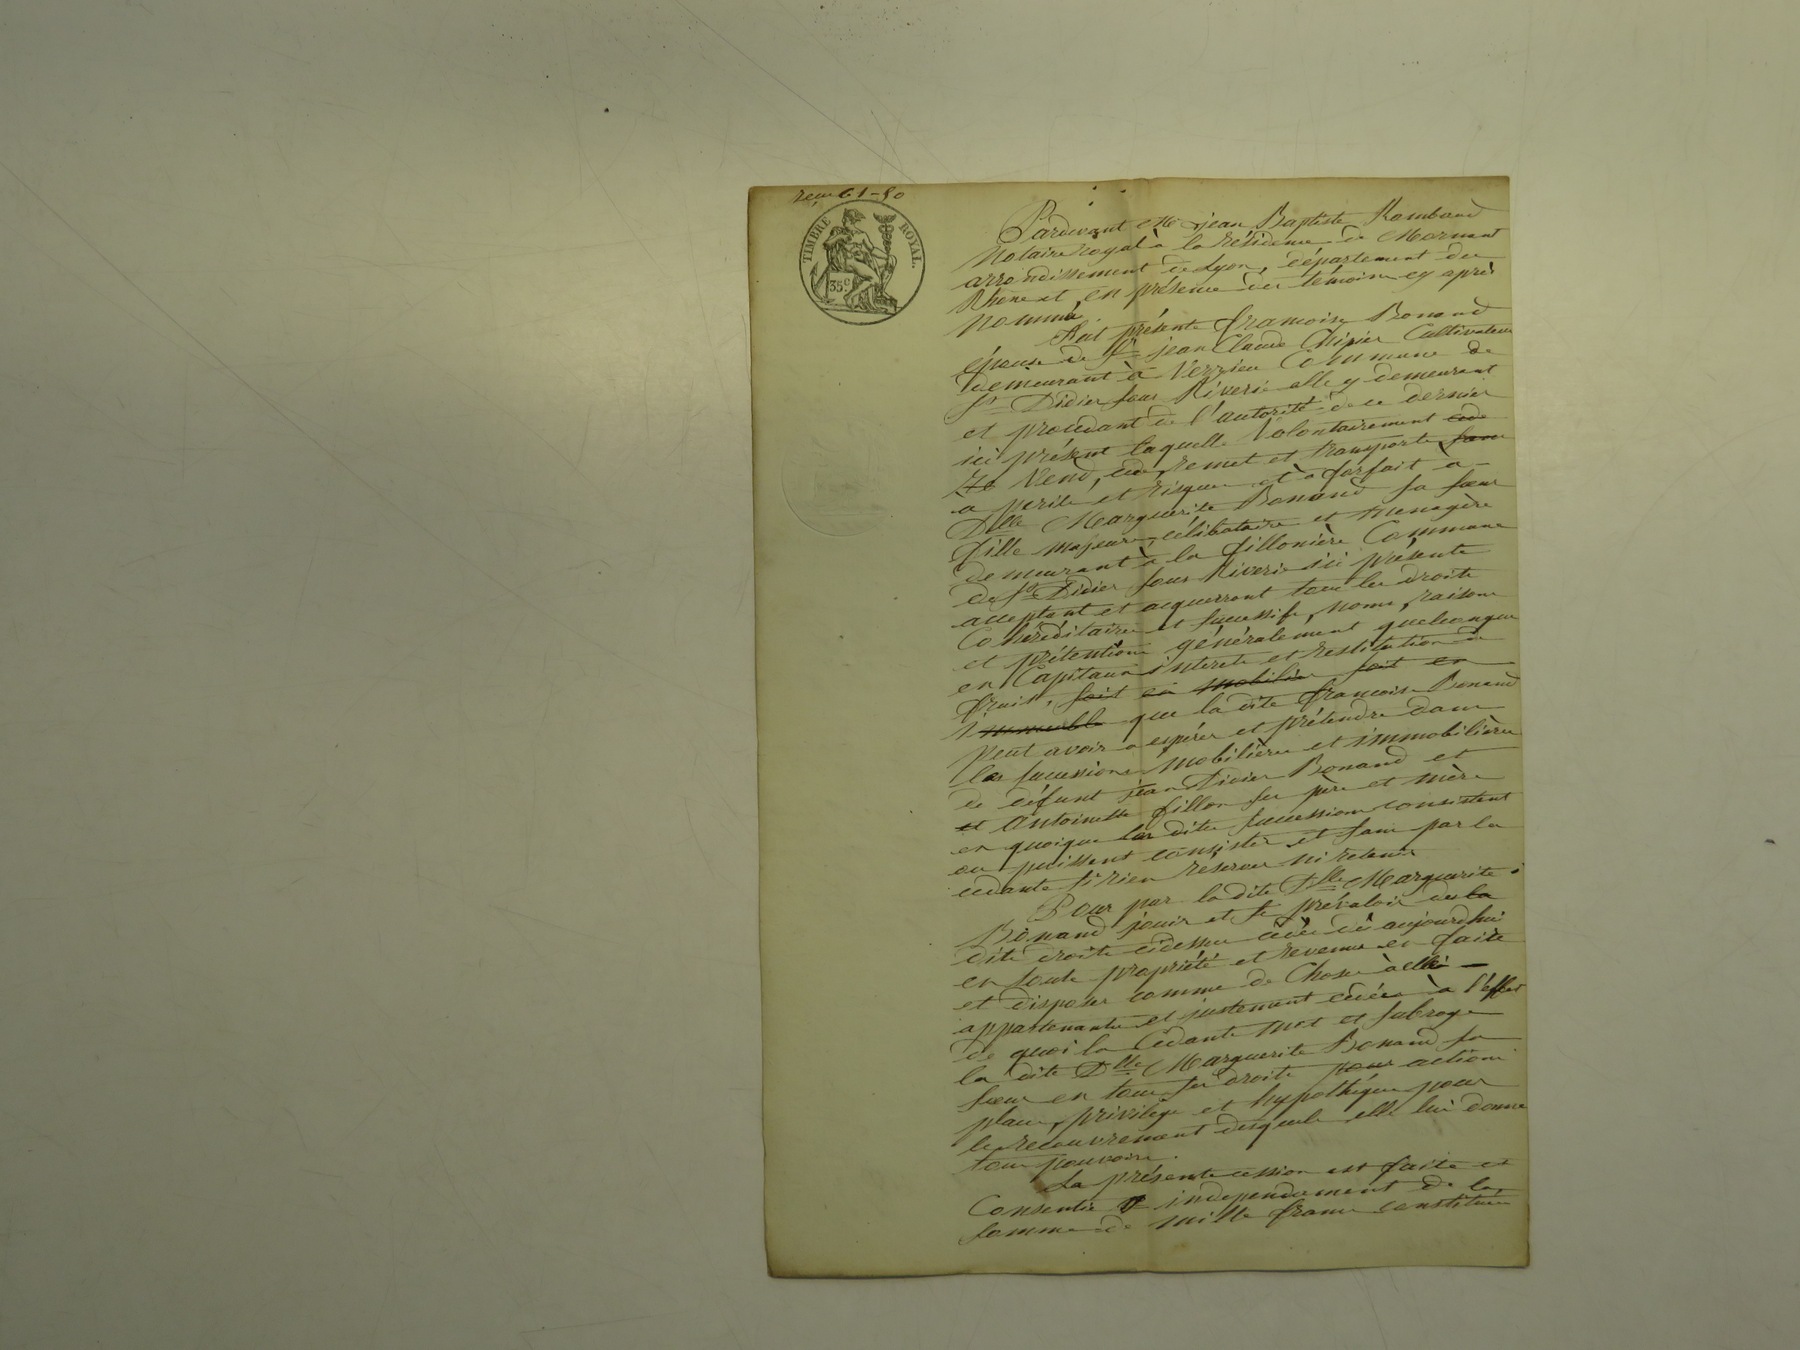 reçu 61-50
TIMBRE ROYAL.
35c
Pardevant Me jean Baptiste Rombaud
Notaire royal à la résidence de Mornant
arrondissement de Lyon, département du
Rhône et en présence des témoins cy après
nommés.
Fut présente françoise Bonand
épouse de Sr jean Claude Chipier Cultivateur
demeurant à Verzieu Commune de
St Didier sous Riverie elle y demeurant
et procédant de l'autorité de ce dernier
ici présent laquelle volontairement cede
Vend, cède, remet et transporte sans
a perils et risques et à forfait à
Dlle Marguerite Bonand sa sœur
fille majeure, célibataire et menagère
demeurant à la fillonière Commune
de St Didier sous Riverie ici présente
acceptant et acquerrant tous les droits
Cohéréditaires et successifs, noms, raisons
et prétentions généralement quelconques
en Capitaux interets et restitution de
fruits, soit en mobilier soit en
immeuble que la dite françoise Bonand
peut avoir a espérer et prétendre dans
les successions mobilières et immobilières
de défunt jean Didier Bonand et
et Antoinette fillon ses père et mère
en quoique les dites successions consistent
ou puissent consister et sans par la
cédante s'i rien réserver ni retenir
Pour par la dite Dlle Marguerite
Bonand jouir et se prévaloir des la
dits droits cidessus cédés dès aujourdhui
en toute propriété et revenus en faire
et disposer comme de Chose à elle
appartenante et justement cédée à l'effet
de quoi la Cédante met et subroge
la dite Dlle Marguerite Bonand sa
sœur en tous ses droits pour actions
place, privilège et hypothéque pour
le recouvrement desquels elle lui donne
tous pouvoirs.
La présente cession est faite et
Consentie independament de la
somme de mille francs constituée